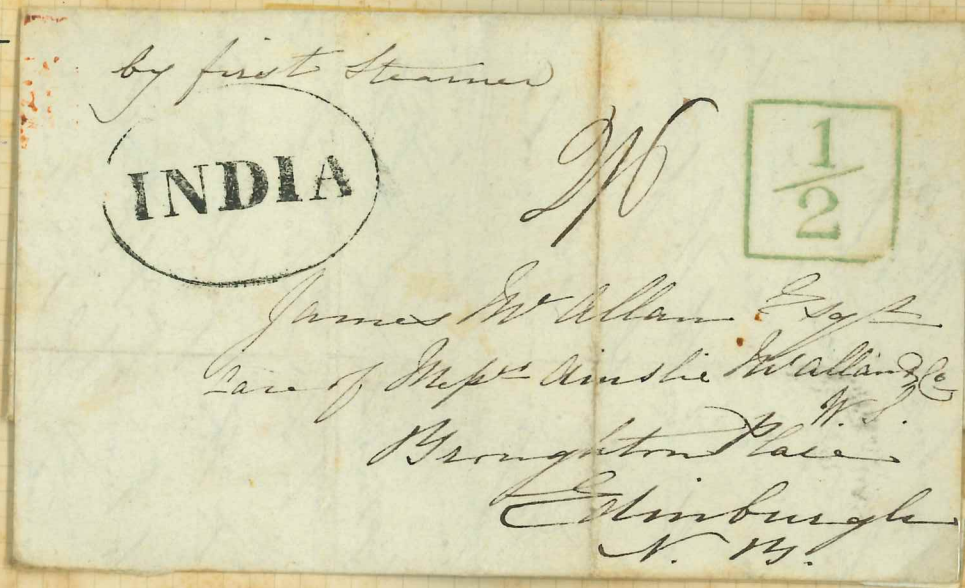 by first Steamer
INDIA
2/6
1/2
James McAllan Esqr
Care of Messrs Ainslie McAllan & Co
W. S.
Broughton Place
Edinburgh
N. B.